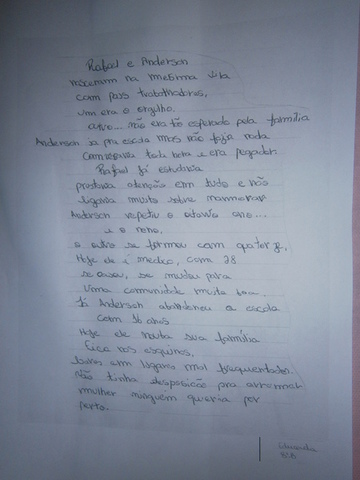 Rafael e Anderson
nasceram na mesma vila
com pais trabalhadores,
um era o orgulho.
outro... não era tão esperado pela família
Anderson ia pra escola mas não fazia nada
Conversava toda hora e era pegador.
Rafael já estudava
prestava atenção em tudo e não
ligava muito sobre namorar
Anderson repetiu o oitavo ano...
e o nono.
o outro se formou com
Hoje ele é medico, com 28
se casou, se mudou para
Uma comunidade muito boa.
Já Anderson abandonou a escola
com 16 anos
Hoje ele sua família
Fica nas esquinas,
bares em lugares mal frequentados.
Não tinha desposição pra arrumar
mulher ninguém queria por
perto.
8ºB